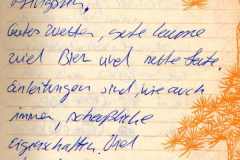 Gutes Wetter, gute Laune
viel Bier und nette Leute.
Anleitungen sind, wie auch
immer, scheußliche
Eigenschaften. Und